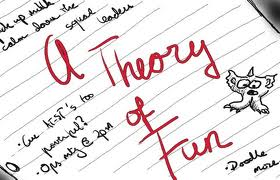 up milk
calm down the squad leaders
A Theory
of
Fun
too
powerful?
• Ops mtg @ 2pm
• Doodle
more